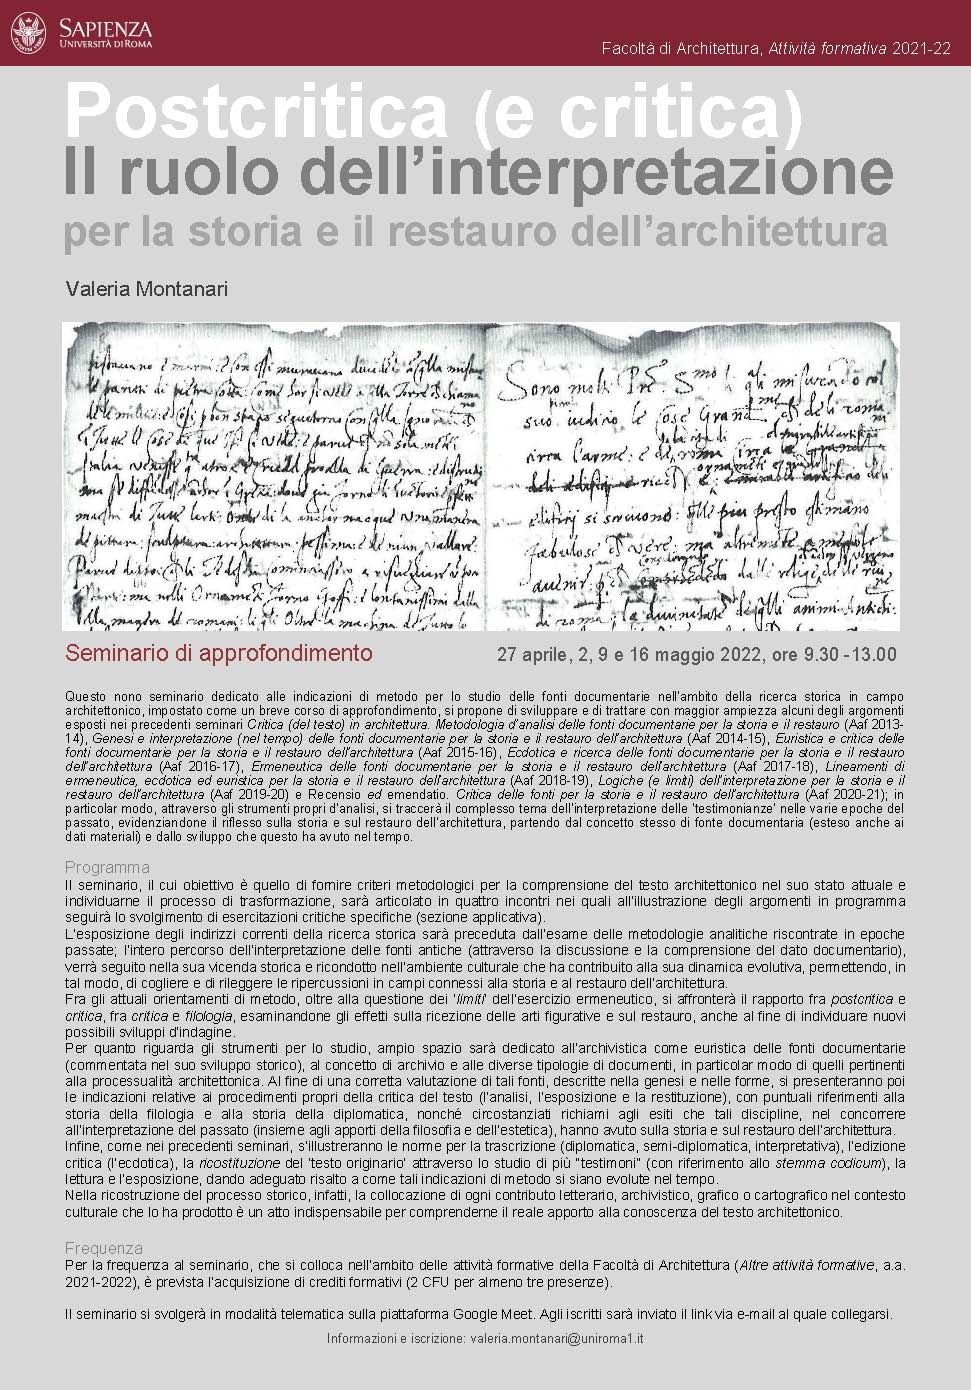 SAPIENZA
UNIVERSITÀ DI ROMA
Facoltà di Architettura, Attività formativa 2021-22
Postcritica (e critica)
Il ruolo dell’interpretazione
per la storia e il restauro dell’architettura
Valeria Montanari
Seminario di approfondimento
27 aprile, 2, 9 e 16 maggio 2022, ore 9.30 -13.00
Questo nono seminario dedicato alle indicazioni di metodo per lo studio delle fonti documentarie nell’ambito della ricerca storica in campo
architettonico, impostato come un breve corso di approfondimento, si propone di sviluppare e di trattare con maggior ampiezza alcuni degli argomenti
esposti nei precedenti seminari Critica (del testo) in architettura. Metodologia d’analisi delle fonti documentarie per la storia e il restauro (Aaf 2013-
14), Genesi e interpretazione (nel tempo) delle fonti documentarie per la storia e il restauro dell’architettura (Aaf 2014-15), Euristica e critica delle
fonti documentarie per la storia e il restauro dell’architettura (Aaf 2015-16), Ecdotica e ricerca delle fonti documentarie per la storia e il restauro
dell’architettura (Aaf 2016-17), Ermeneutica delle fonti documentarie per la storia e il restauro dell’architettura (Aaf 2017-18), Lineamenti di
ermeneutica, ecdotica ed euristica per la storia e il restauro dell’architettura (Aaf 2018-19), Logiche (e limiti) dell’interpretazione per la storia e il
restauro dell’architettura (Aaf 2019-20) e Recensio ed emendatio. Critica delle fonti per la storia e il restauro dell’architettura (Aaf 2020-21); in
particolar modo, attraverso gli strumenti propri d’analisi, si traccerà il complesso tema dell’interpretazione delle ‘testimonianze’ nelle varie epoche del
passato, evidenziandone il riflesso sulla storia e sul restauro dell’architettura, partendo dal concetto stesso di fonte documentaria (esteso anche ai
dati materiali) e dallo sviluppo che questo ha avuto nel tempo.
Programma
Il seminario, il cui obiettivo è quello di fornire criteri metodologici per la comprensione del testo architettonico nel suo stato attuale e
individuarne il processo di trasformazione, sarà articolato in quattro incontri nei quali all’illustrazione degli argomenti in programma
seguirà lo svolgimento di esercitazioni critiche specifiche (sezione applicativa).
L’esposizione degli indirizzi correnti della ricerca storica sarà preceduta dall’esame delle metodologie analitiche riscontrate in epoche
passate; l’intero percorso dell’interpretazione delle fonti antiche (attraverso la discussione e la comprensione del dato documentario),
verrà seguito nella sua vicenda storica e ricondotto nell’ambiente culturale che ha contribuito alla sua dinamica evolutiva, permettendo, in
tal modo, di cogliere e di rileggere le ripercussioni in campi connessi alla storia e al restauro dell’architettura.
Fra gli attuali orientamenti di metodo, oltre alla questione dei ‘limiti’ dell’esercizio ermeneutico, si affronterà il rapporto fra postcritica e
critica, fra critica e filologia, esaminandone gli effetti sulla ricezione delle arti figurative e sul restauro, anche al fine di individuare nuovi
possibili sviluppi d’indagine.
Per quanto riguarda gli strumenti per lo studio, ampio spazio sarà dedicato all’archivistica come euristica delle fonti documentarie
(commentata nel suo sviluppo storico), al concetto di archivio e alle diverse tipologie di documenti, in particolar modo di quelli pertinenti
alla processualità architettonica. Al fine di una corretta valutazione di tali fonti, descritte nella genesi e nelle forme, si presenteranno poi
le indicazioni relative ai procedimenti propri della critica del testo (l’analisi, l’esposizione e la restituzione), con puntuali riferimenti alla
storia della filologia e alla storia della diplomatica, nonché circostanziati richiami agli esiti che tali discipline, nel concorrere
all’interpretazione del passato (insieme agli apporti della filosofia e dell’estetica), hanno avuto sulla storia e sul restauro dell’architettura.
Infine, come nei precedenti seminari, s’illustreranno le norme per la trascrizione (diplomatica, semi-diplomatica, interpretativa), l’edizione
critica (l’ecdotica), la ricostituzione del ‘testo originario’ attraverso lo studio di più “testimoni” (con riferimento allo stemma codicum), la
lettura e l’esposizione, dando adeguato risalto a come tali indicazioni di metodo si siano evolute nel tempo.
Nella ricostruzione del processo storico, infatti, la collocazione di ogni contributo letterario, archivistico, grafico o cartografico nel contesto
culturale che lo ha prodotto è un atto indispensabile per comprenderne il reale apporto alla conoscenza del testo architettonico.
Frequenza
Per la frequenza al seminario, che si colloca nell’ambito delle attività formative della Facoltà di Architettura (Altre attività formative, a.a.
2021-2022), è prevista l’acquisizione di crediti formativi (2 CFU per almeno tre presenze).
Il seminario si svolgerà in modalità telematica sulla piattaforma Google Meet. Agli iscritti sarà inviato il link via e-mail al quale collegarsi.
Informazioni e iscrizione: valeria.montanari@uniroma1.it